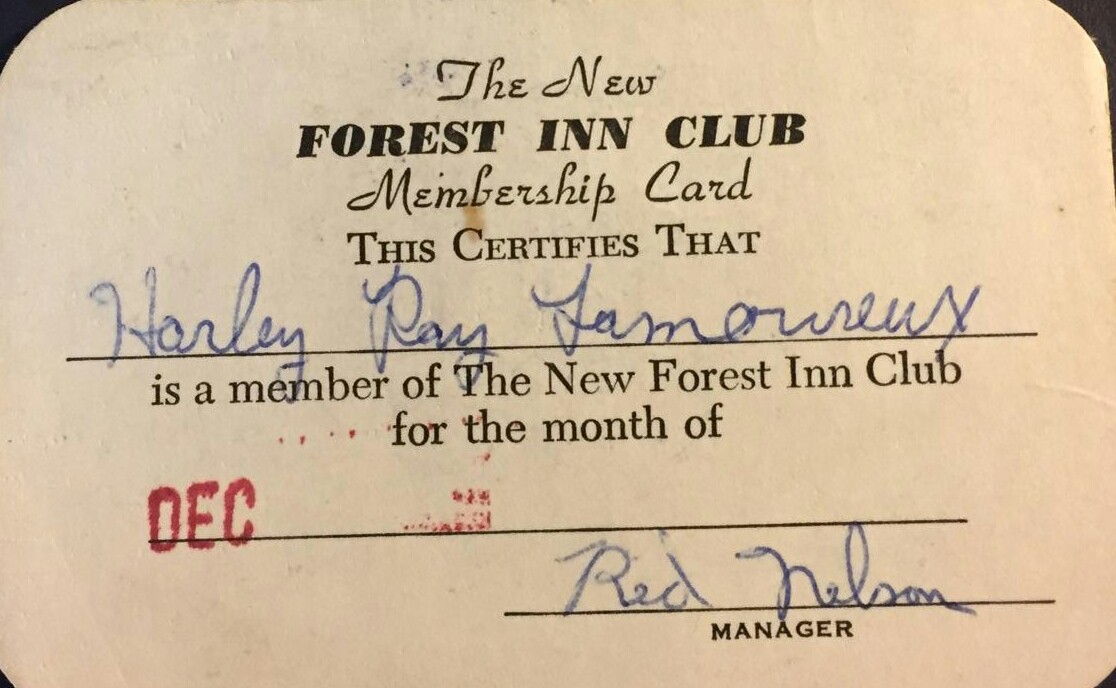 The New
FOREST INN CLUB
Membership Card
THIS CERTIFIES THAT
Harley Ray Lamoureux
is a member of The New Forest Inn Club
for the month of
DEC
Red Nelson
MANAGER